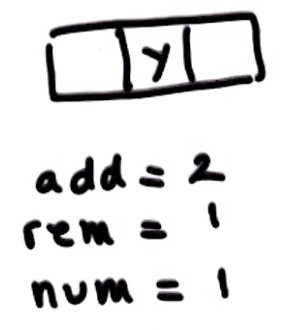 Y
add = 2
rem = 1
num = 1